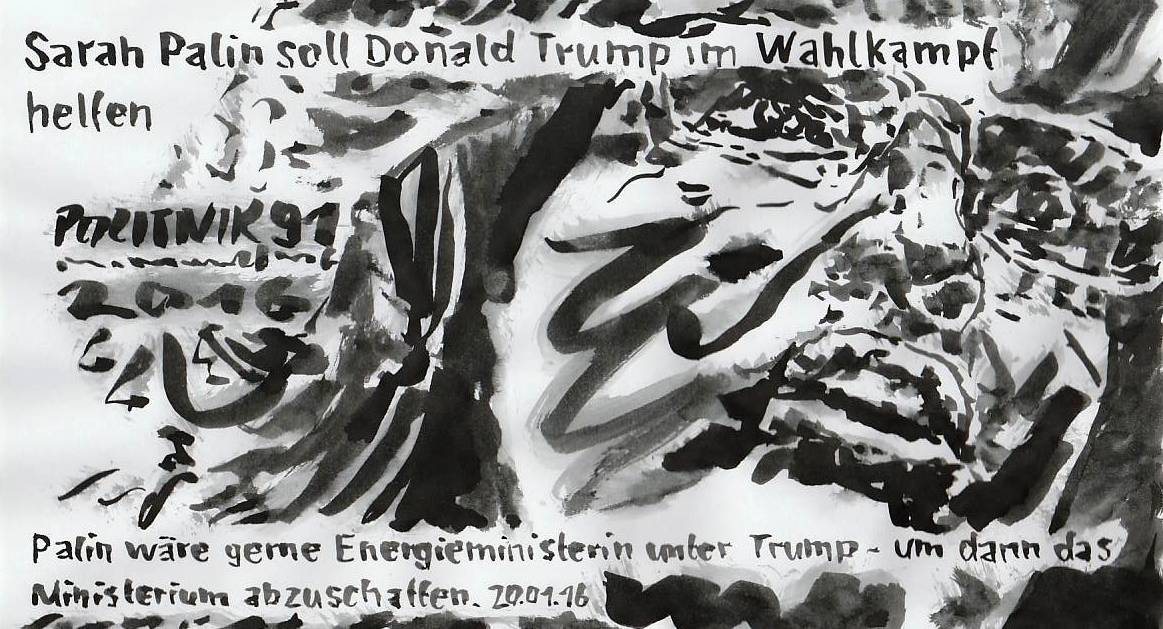 Sarah Palin soll Donald Trump im Wahlkampf
helfen
2016
Palin wäre gerne Energieministerin unter Trump - um dann das
Ministerium abzuschaffen. 20.01.16